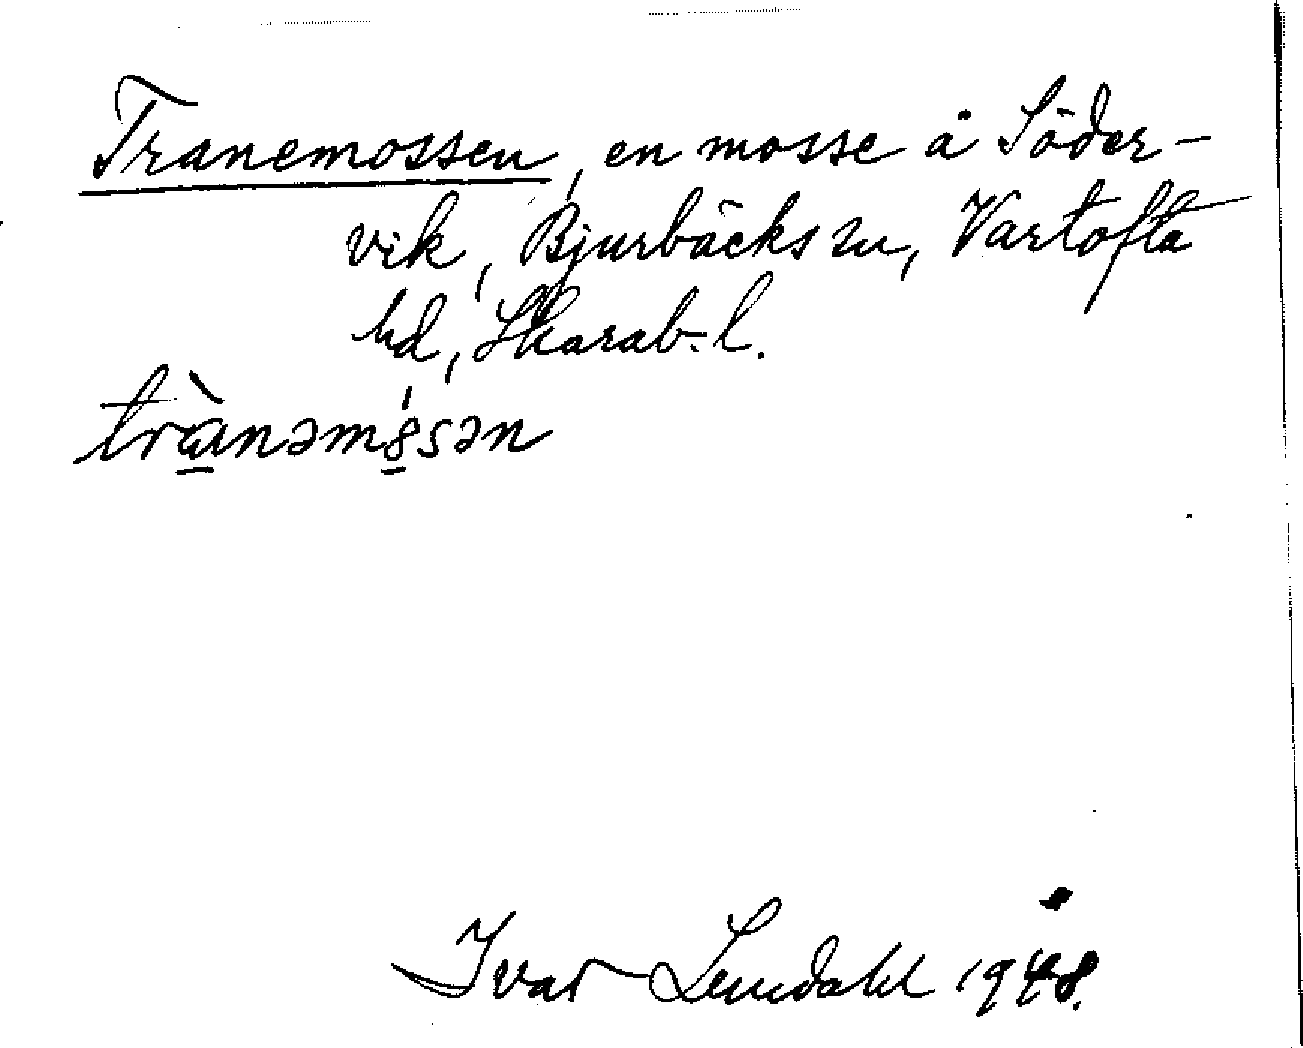 Tranemossen, en mosse å Söder-
vik, Bjurbäcks sn, Vartofta
hd, Skarab. l.
trànəmˈ8sən
Ivar Lundahl 1948.